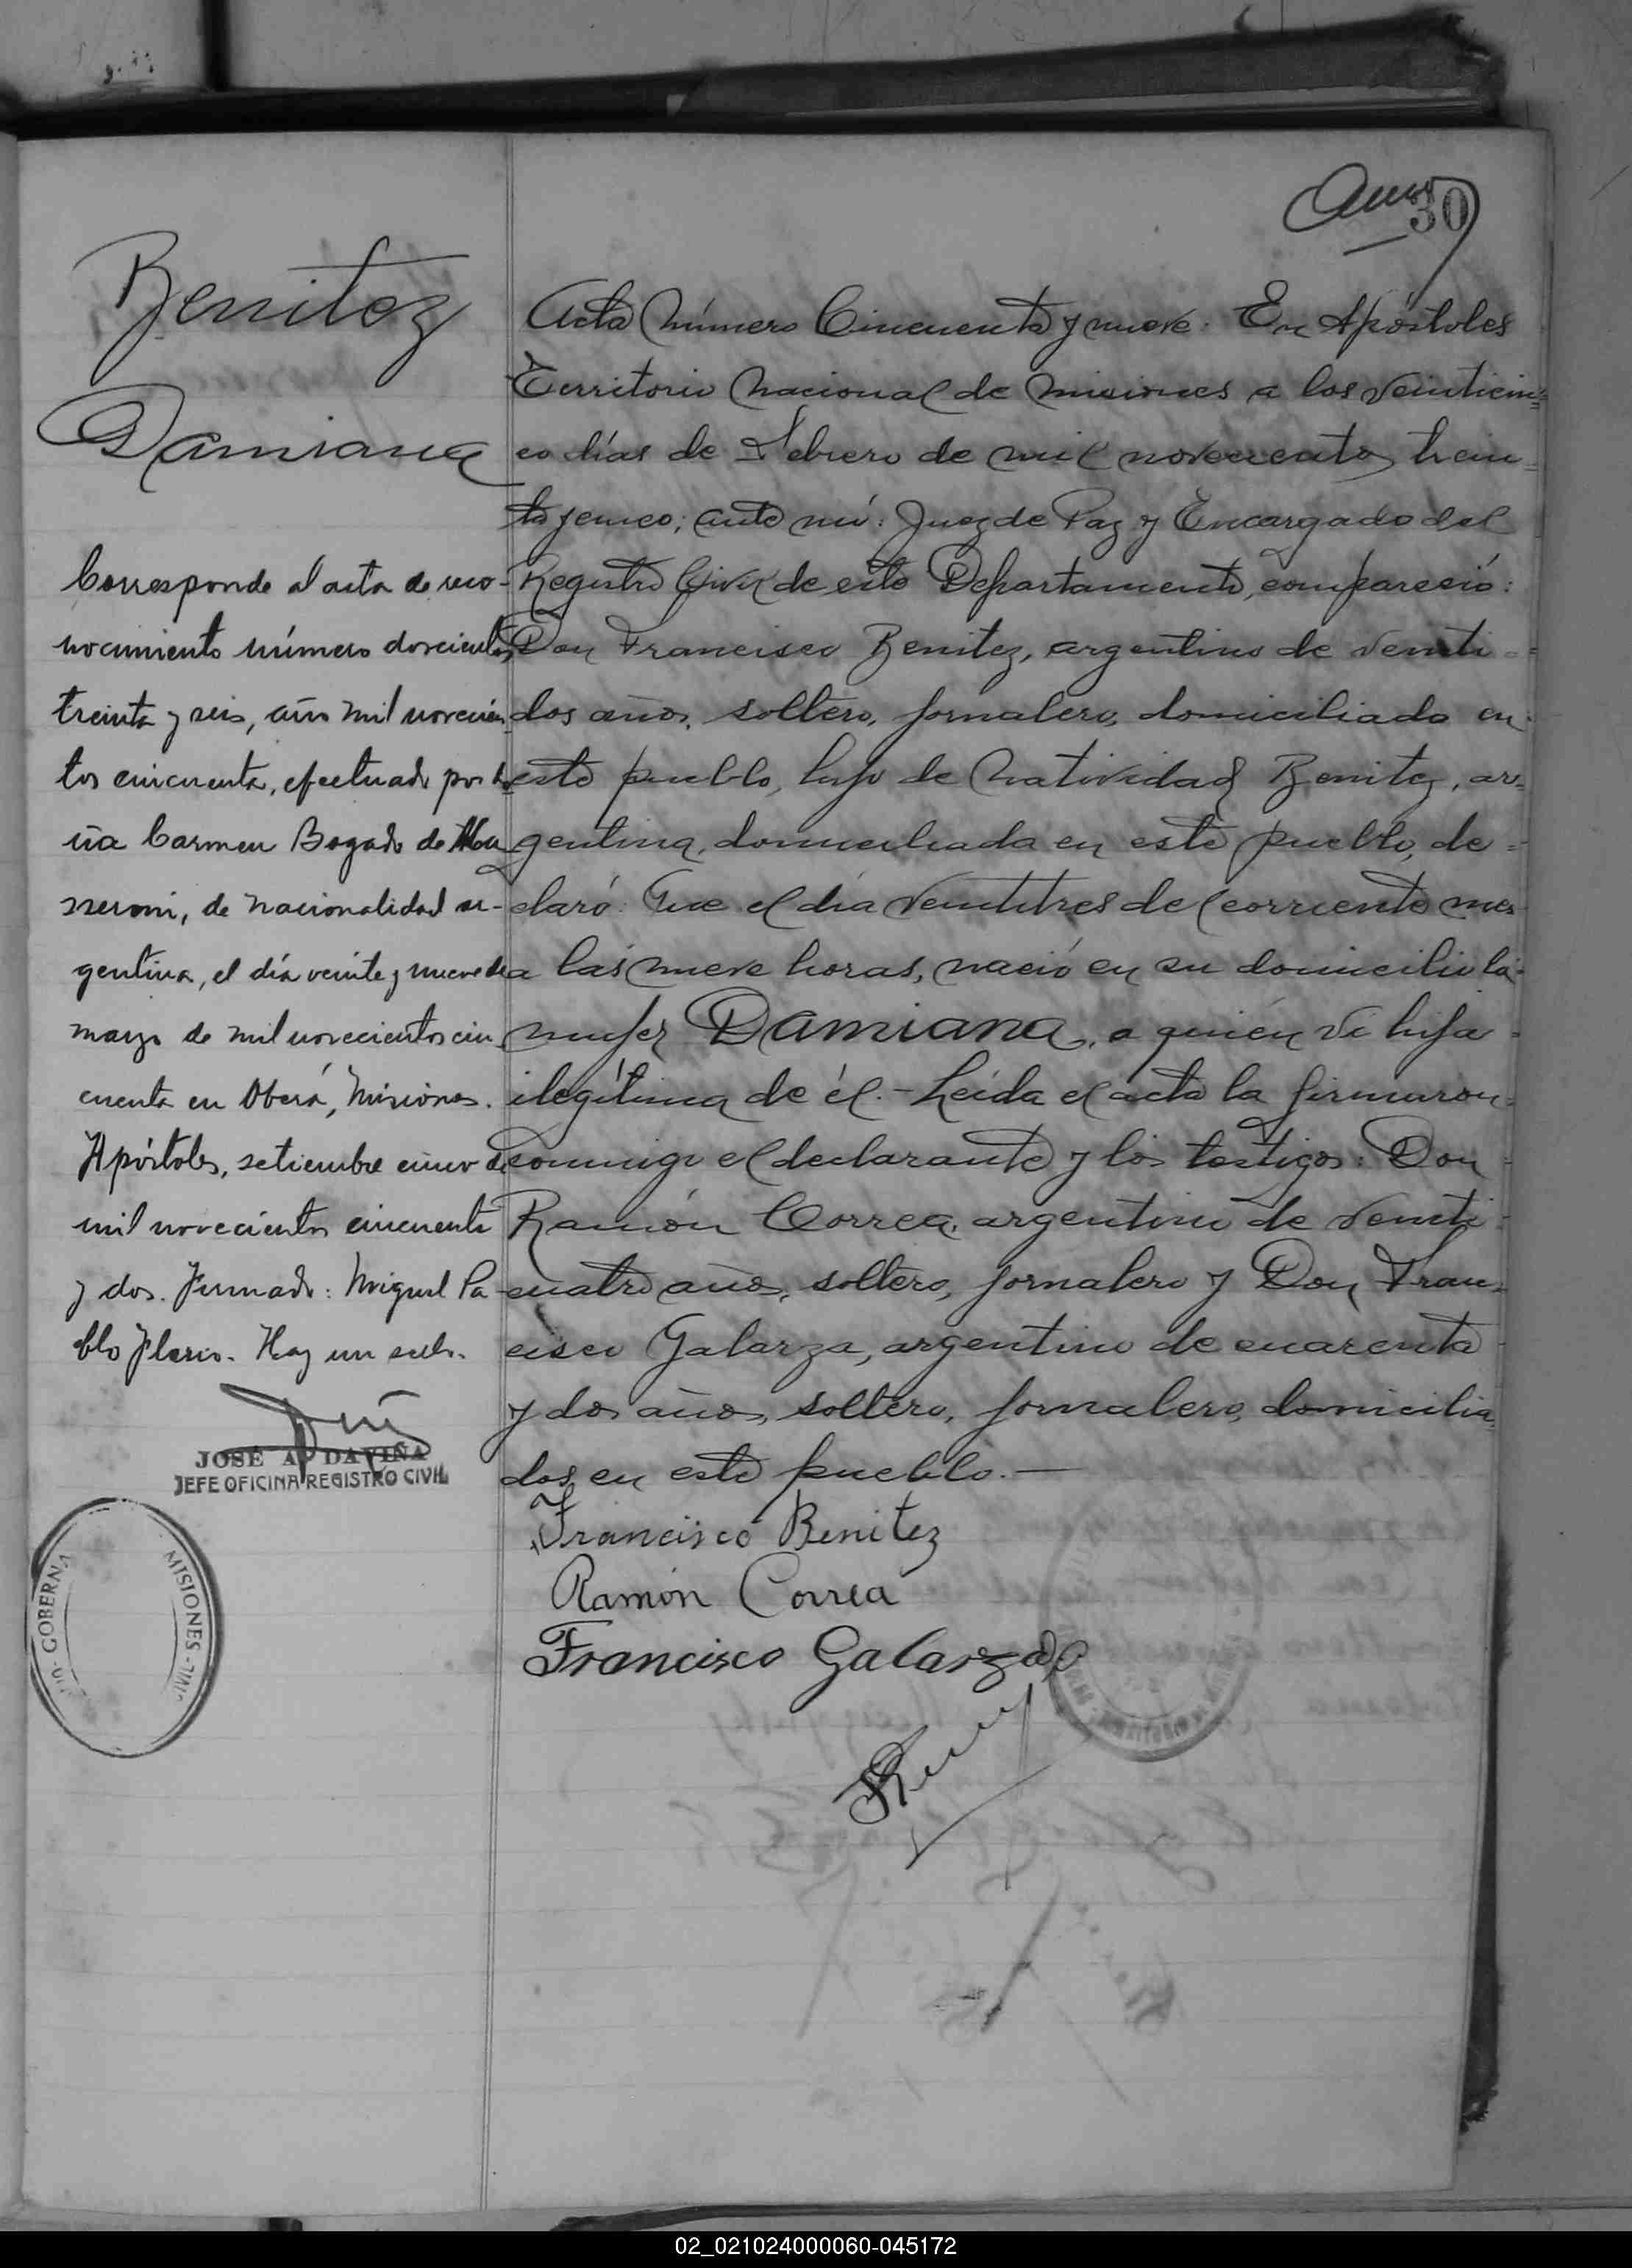 30
Benitez
Damiana
Corresponde al acta de reco-
nocimiento número doscientos
treinta y seis, año mil novecien-
tos cincuenta, efectuado por do-
ña Carmen Bogado de
de nacionalidad ar-
gentina, el día veinte y nueve de
marzo de mil novecientos cin-
cuenta en Oberá, Misiones.
Apóstoles, setiembre cinco de
mil novecientos cincuenta
y dos. Firmado: Miguel Pa-
blo Hay un sello.
JOSÉ A. DAVIÑA
JEFE OFICINA REGISTRO CIVIL
GOBERNA
MISIONES
Acta Número Cincuenta y nueve: En Apóstoles
Territorio Nacional de Misiones a los Veinticin=
co días de Febrero de mil novecientos trein=
ta y cinco; ante mí: Juez de Paz y Encargado del
Registro Civil de este Departamento, compareció:
Don Francisco Benitez, argentino de veinti=
dos años, soltero, jornalero, domiciliado en
este pueblo, hijo de Natividad Benitez, ar=
gentina, domiciliada en este pueblo, de=
claró: Que el día veintitres del corriente mes
a las nueve horas, nació en su domicilio la
mujer Damiana, a quién vi hija
ilegítima de él.- Leída el acta la firmaron
conmigo el declarante y los testigos: Don
Ramón Correa, argentino de veinti-
cuatro años, soltero, jornalero y Don Fran=
cisco Galarza, argentino de cuarenta
y dos años, soltero, jornalero, domicilia=
dos en este pueblo.—
Francisco Benitez
Ramón Correa
Francisco Galarza
02_021024000060-045172